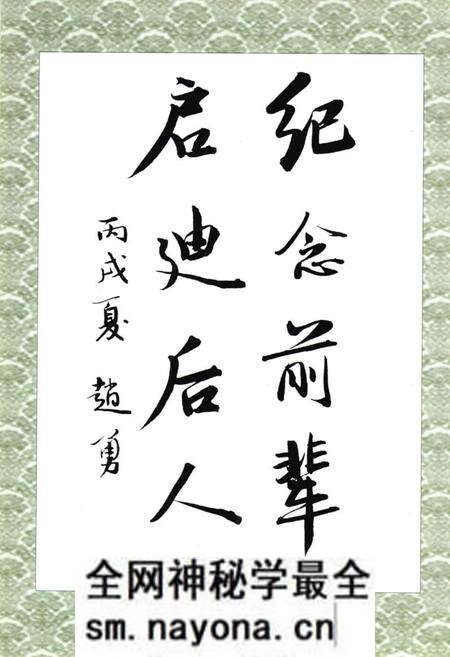 纪念前辈
启迪后人
丙戌夏 趙勇
全网神秘学最全
sm.nayona.cn